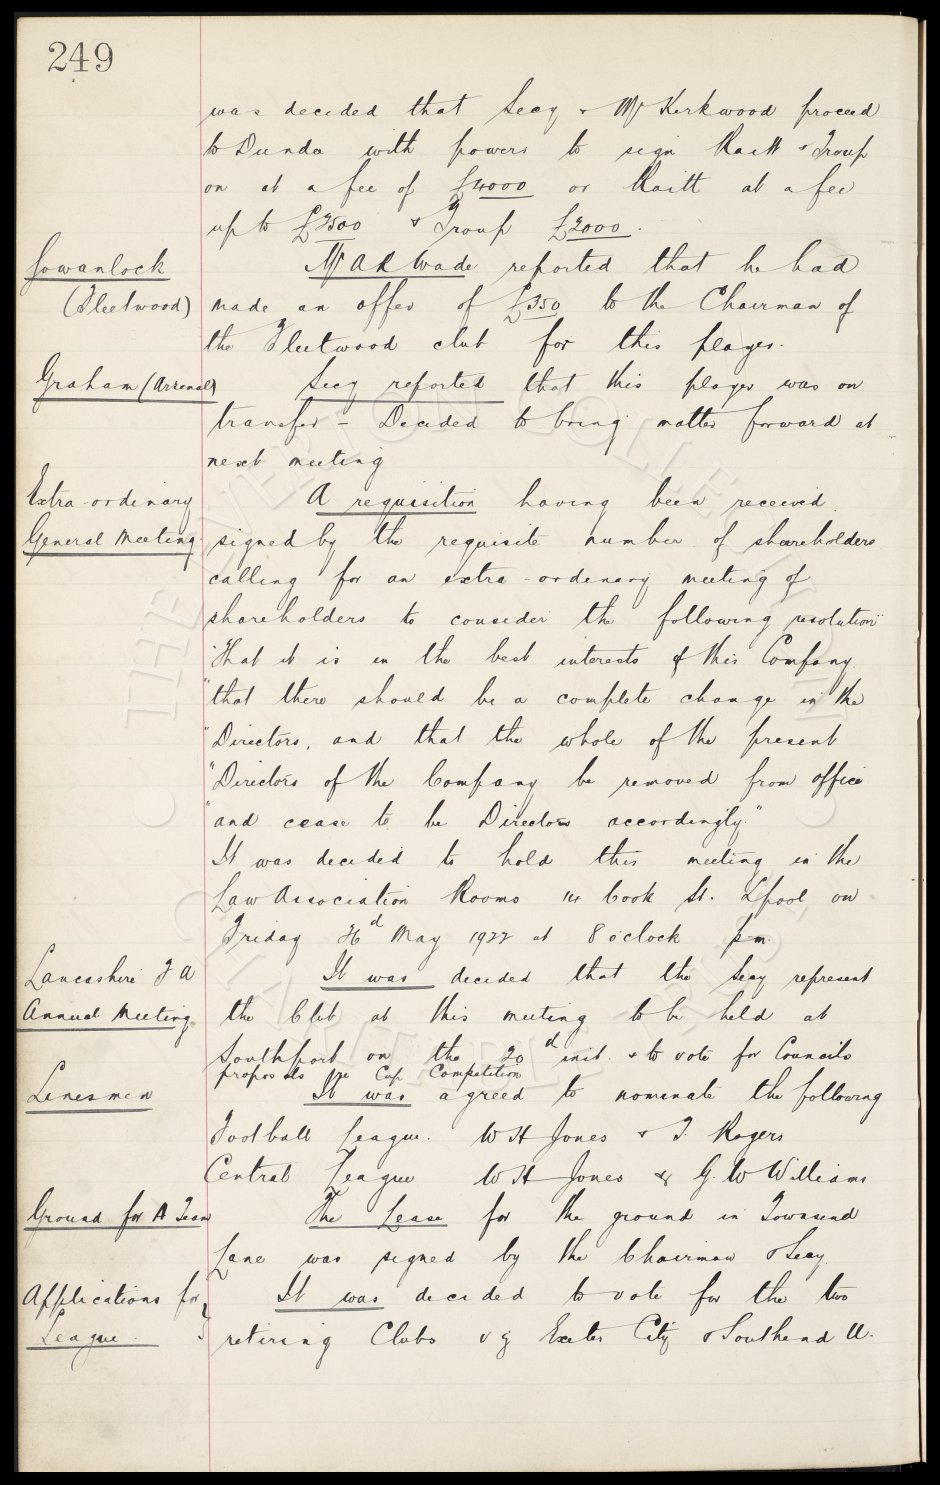 249
was decided that Secy & Mr Kirkwood proceed
to Dundee with powers to sign Raitt & Troup
on at a fee of £4000 or Raitt at a fee
up to £2500 & Troup £2000.
Gowanlock
(Fleetwood)
Mr A R Wade reported that he had
made an offer of £350 to the Chairman of
the Fleetwood club for this player.
Graham (Arsenal)
Secy reported that this player was on
transfer - Decided to bring matter forward at
next meeting
Extra-ordinary
General Meeting
A requisition having been received
signed by the requisite number of shareholders
calling for an extra-ordinary meeting of
shareholders to consider the following resolution
"That it is in the best interests of this Company
"that there should be a complete change in the
"Directors, and that the whole of the present
"Directors of the Company be removed from office
"and cease to be Directors accordingly."
It was decided to hold this meeting in the
Law Association Rooms 14 Cook St. L'pool on
Friday 26d May 1922 at 8 o'clock pm.
Lancashire F A
Annual Meeting
It was decided that the Secy represent
the Club at this meeting to be held at
Southport on the 20d inst. & to vote for Councils
proposals re Cup Competition
Linesmen
It was agreed to nominate the following
Football League. W H Jones & T. Rogers
Central League W H Jones & G. W Williams
Ground for A Team
The Lease for the ground in Townsend
Lane was signed by the Chairman & Secy.
Applications for
League.
It was decided to vote for the two
retiring Clubs vz Exeter City & Southend U.
THE EVERTON COLLECTION
CHARITABLE TRUST